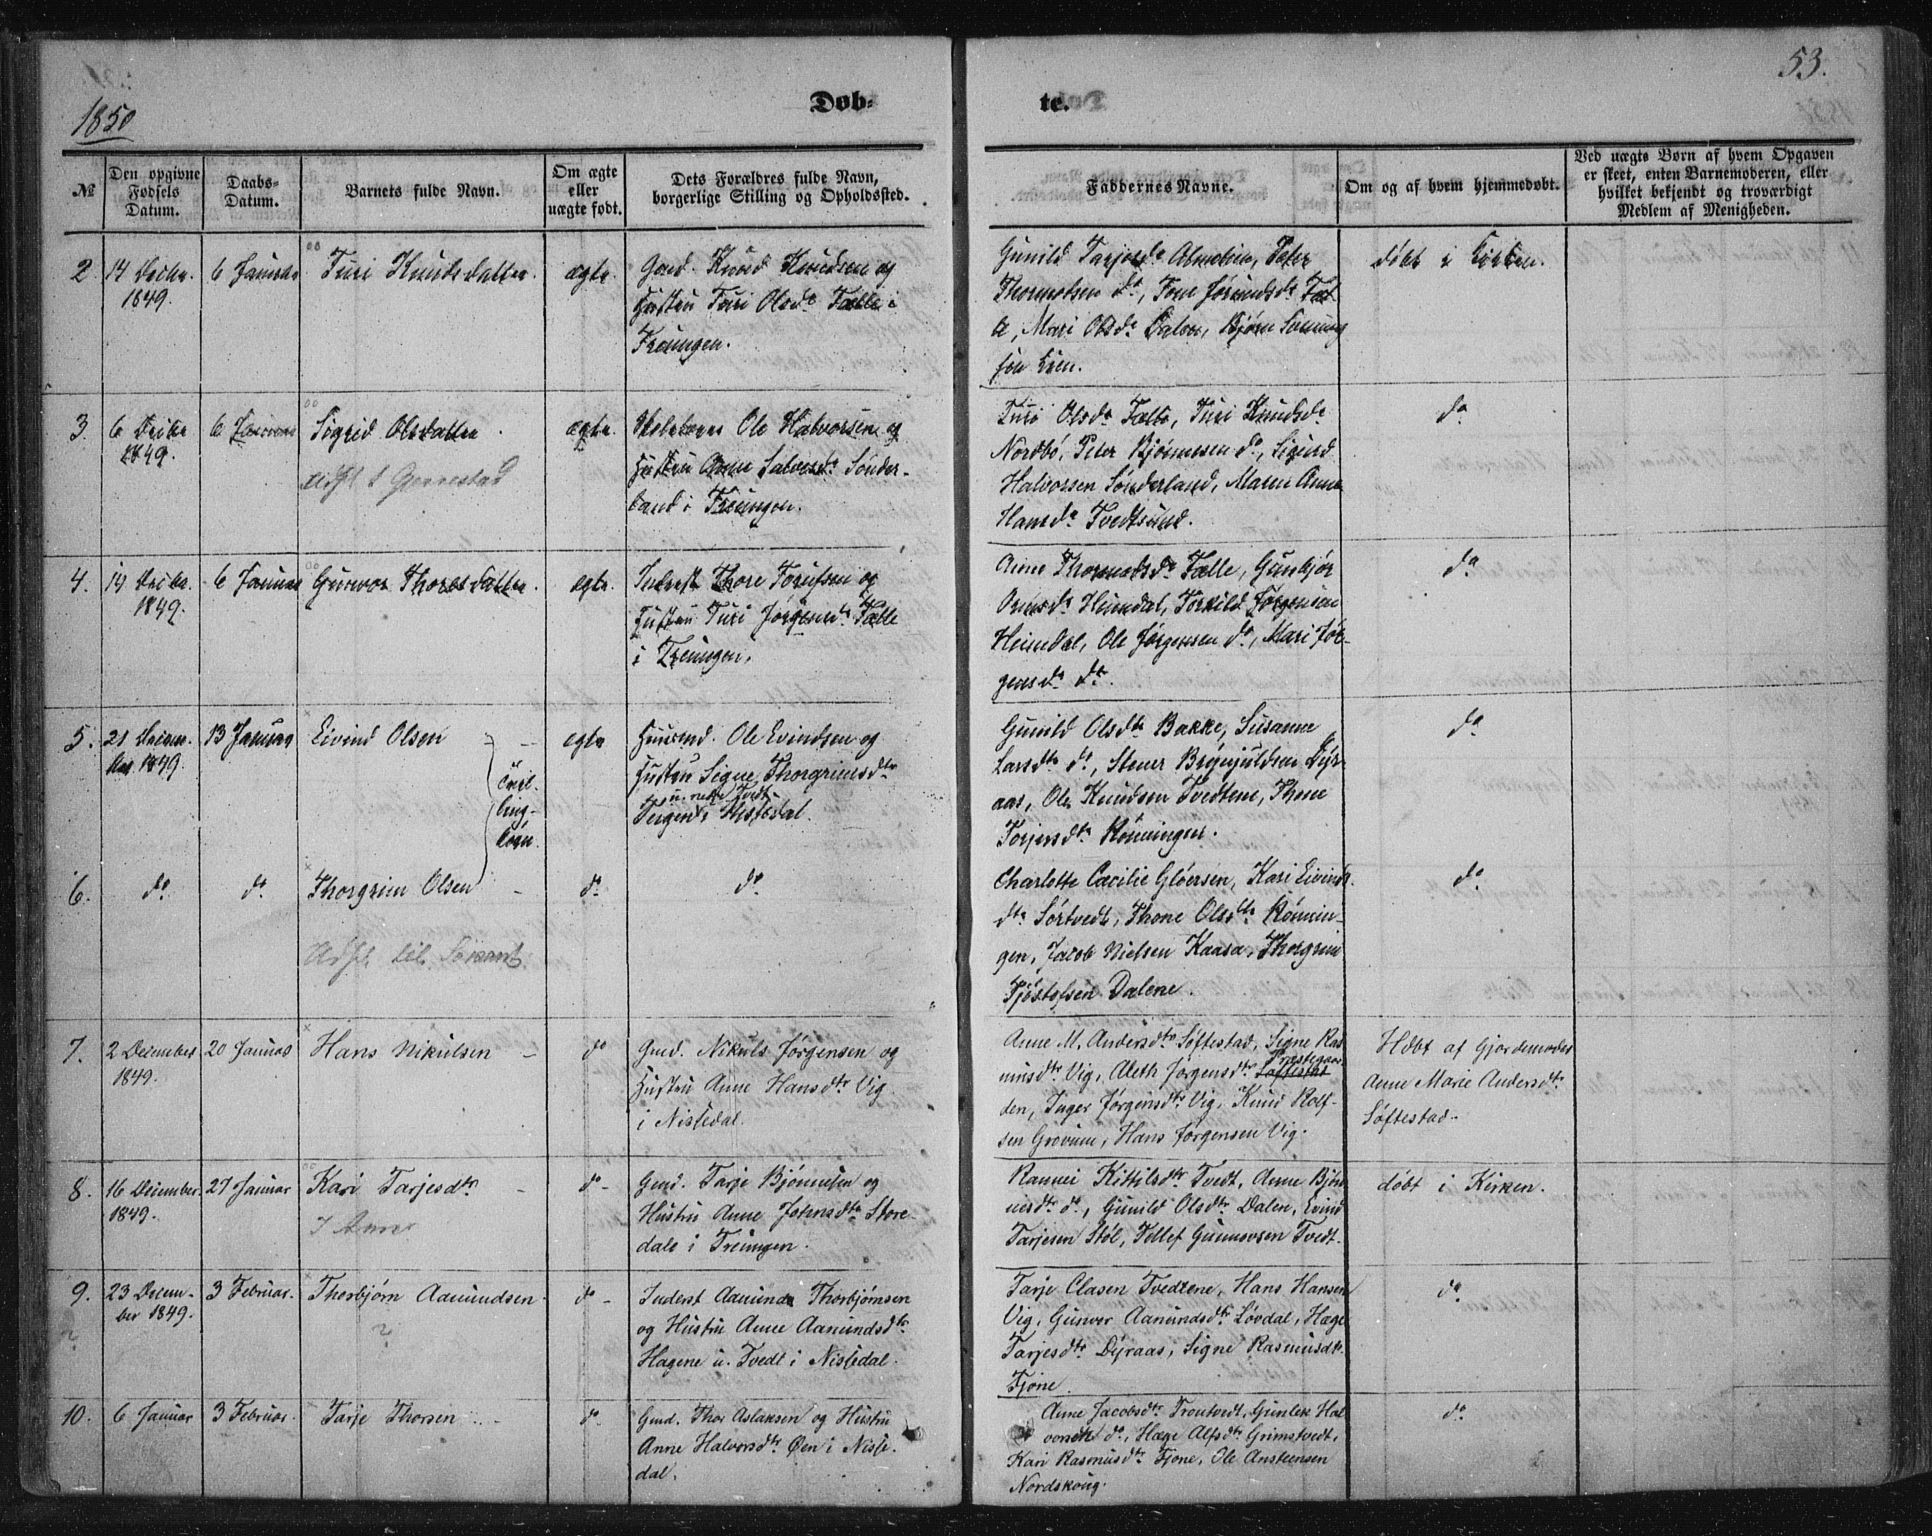 1850
Døb-
te.
53.
№
Den opgivne Fødsels Datum.
Daabs-Datum.
Barnets fulde Navn.
Om ægte eller uægte født.
Dets Forældres fulde Navn, borgerlige Stilling og Opholdssted.
Faddernes Navne.
Om og af hvem hjemmedøbt.
Ved uægte Børn af hvem Opgaven er skeet, enten Barnemoderen, eller hvilket bekjendt og troværdigt Medlem af Menigheden.
2
14 Decbr.
1849.
6 Januar
Turi Knudsdatter.
ægte.
Gmd. Knud Knudsen og
Hustru Turi Olsd. Fælle i
Treungen.
Gunild Tarjesd.
Thormodsen do, Tone Jørundsd. Fæl-
le, Mari Olsd. Dalen, Bjørn
sen Lien.
døbt i Kirken.
3.
6 Decbr
1849.
6 Januar
Sigrid Olsdatter
Udfl t Gjerrestad
ægte.
Ole Halvorsen og
Hustru Anne Salvesd. Sønder-
land i Treungen.
Turi Olsd. Fælle, Turi Knudsd.
Nordbø, Peter Bjørnsen do, Sigurd
Halvorsen Sønderland, Maren Anne
Hansd. Tvedtsund.
do
4.
19 Decbr.
1849.
6 Januar
Gunvor Thoresdatter.
ægte.
Inderst Thore og
Hustru Turi Jørgensd. Fælle
i Treungen.
Anne Thormodsd. Fælle, Gunbjør
Heimdal, Torkild Jørgensen
Heimdal, Ole Jørgensen do, Mari Jør-
gensd. do.
do
5.
21 Decem-
ber 1849.
13 Januar
Eivind Olsen
Tvil-
ling-
børn.
ægte
Huusmd. Ole Evindsen og
Hustru Signe Thorgrimsdtr
u. nedre Tvedt
i Nissedal.
Gunild Olsdtr Bakke, Susanne
Larsdtr do, Stener Brynjuldsen Dyr-
aas, Ole Knudsen Tvedtene, Thone
Torjersdtr Rønningen.
do
6.
do
do
Thorgrim Olsen
Udfl til
do
do
Charlotte Cæcilie Gløersen, Kari Eivinds-
dtr Sørtvedt, Thone Olsdtr Rønnin-
gen, Jacob Nielsen Kaasa, Thorgrim
Tjøstolsen Dalene.
do
7.
2 December
1849.
20 Januar
Hans Nikulsen
do
Gmd. Nikuls Jørgensen og
Hustru Anne Hansdtr Vig
i Nissedal.
Anne M. Andersdtr Søftestad, Signe Ras-
musdtr Vig, Aleth Jørgensdtr Søftestad Præstegaar-
den, Inger Jørgensdtr Vig, Knud Rolf-
sen Grovum, Hans Jørgensen Vig.
Hdbt af Gjordemoder
Anne Marie Andersdtr
Søftestad.
8.
16 December
1849.
27 Januar
Kari Tarjesdtr
do
Gmd. Tarje Bjørnulsen og
Hustru Anne Johnsdtr Store-
dale i Treungen.
Rannei Kittilsdtr Tvedt, Anne Bjør-
nesdtr do, Gunild Olsdtr Dalen, Evind
Tarjesen Støl, Tellef Gunnuvsen Tvedt.
døbt i Kirken.
9.
?
23 Decem-
ber 1849.
3 Februar.
Thorbjørn Aanundsen
?
do
Inderst Aanund Thorbjørnsen
og Hustru Anne Aanundsdtr
Hagene u. Tvedt i Nissedal.
Tarje Clasen Tvedtene, Hans Hansen
Vig, Gunvor Aanundsdtr Løvdal, Hæge
Tarjesdtr Dyraas, Signe Rasmusdtr
Fjone.
do
10.
6 Januar
3 Februar.
Tarje Thorsen
do
Gmd. Thor Aslaksen og Hustru
Anne Halvorsdtr Øen i Nisse-
dal.
Anne Jacobsdtr Trontvedt, Gunlek Hal-
vorsen do, Hæge Alfsdtr Grimstvedt,
Kari Rasmusdtr Fjone, Ole Anstensen
Nordskoug.
do